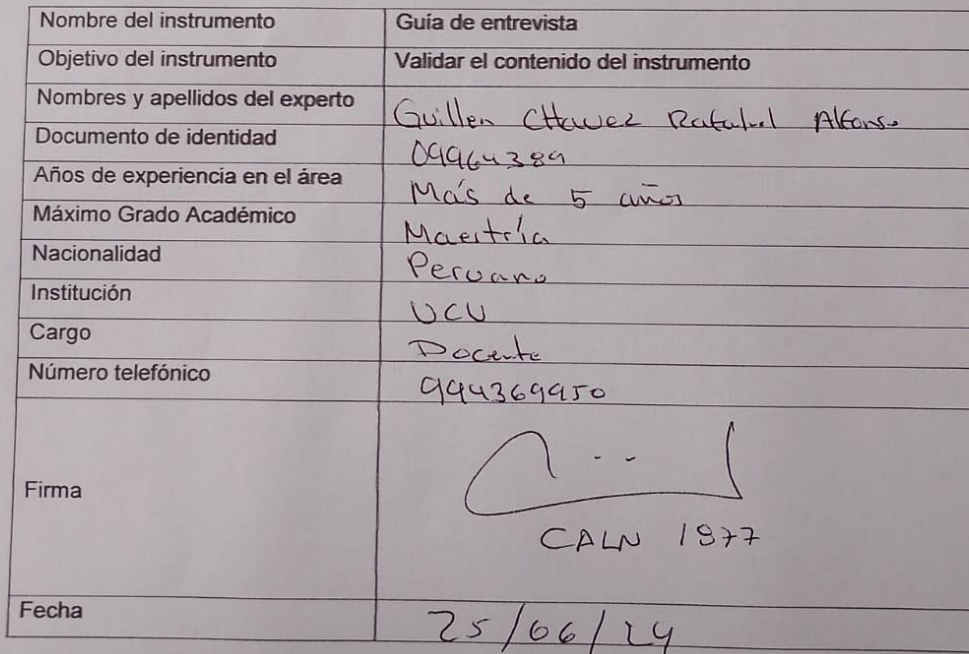 Nombre del instrumento Guía de entrevista
Objetivo del instrumento Validar el contenido del instrumento
Nombres y apellidos del experto Guillen CHavez Rafahel Alfonso
Documento de identidad 09964389
Años de experiencia en el área Más de 5 años
Máximo Grado Académico Maestría
Nacionalidad Peruano
Institución UCV
Cargo Docente
Número telefónico 994369950
Firma
CALN 1877
Fecha 25/06/24